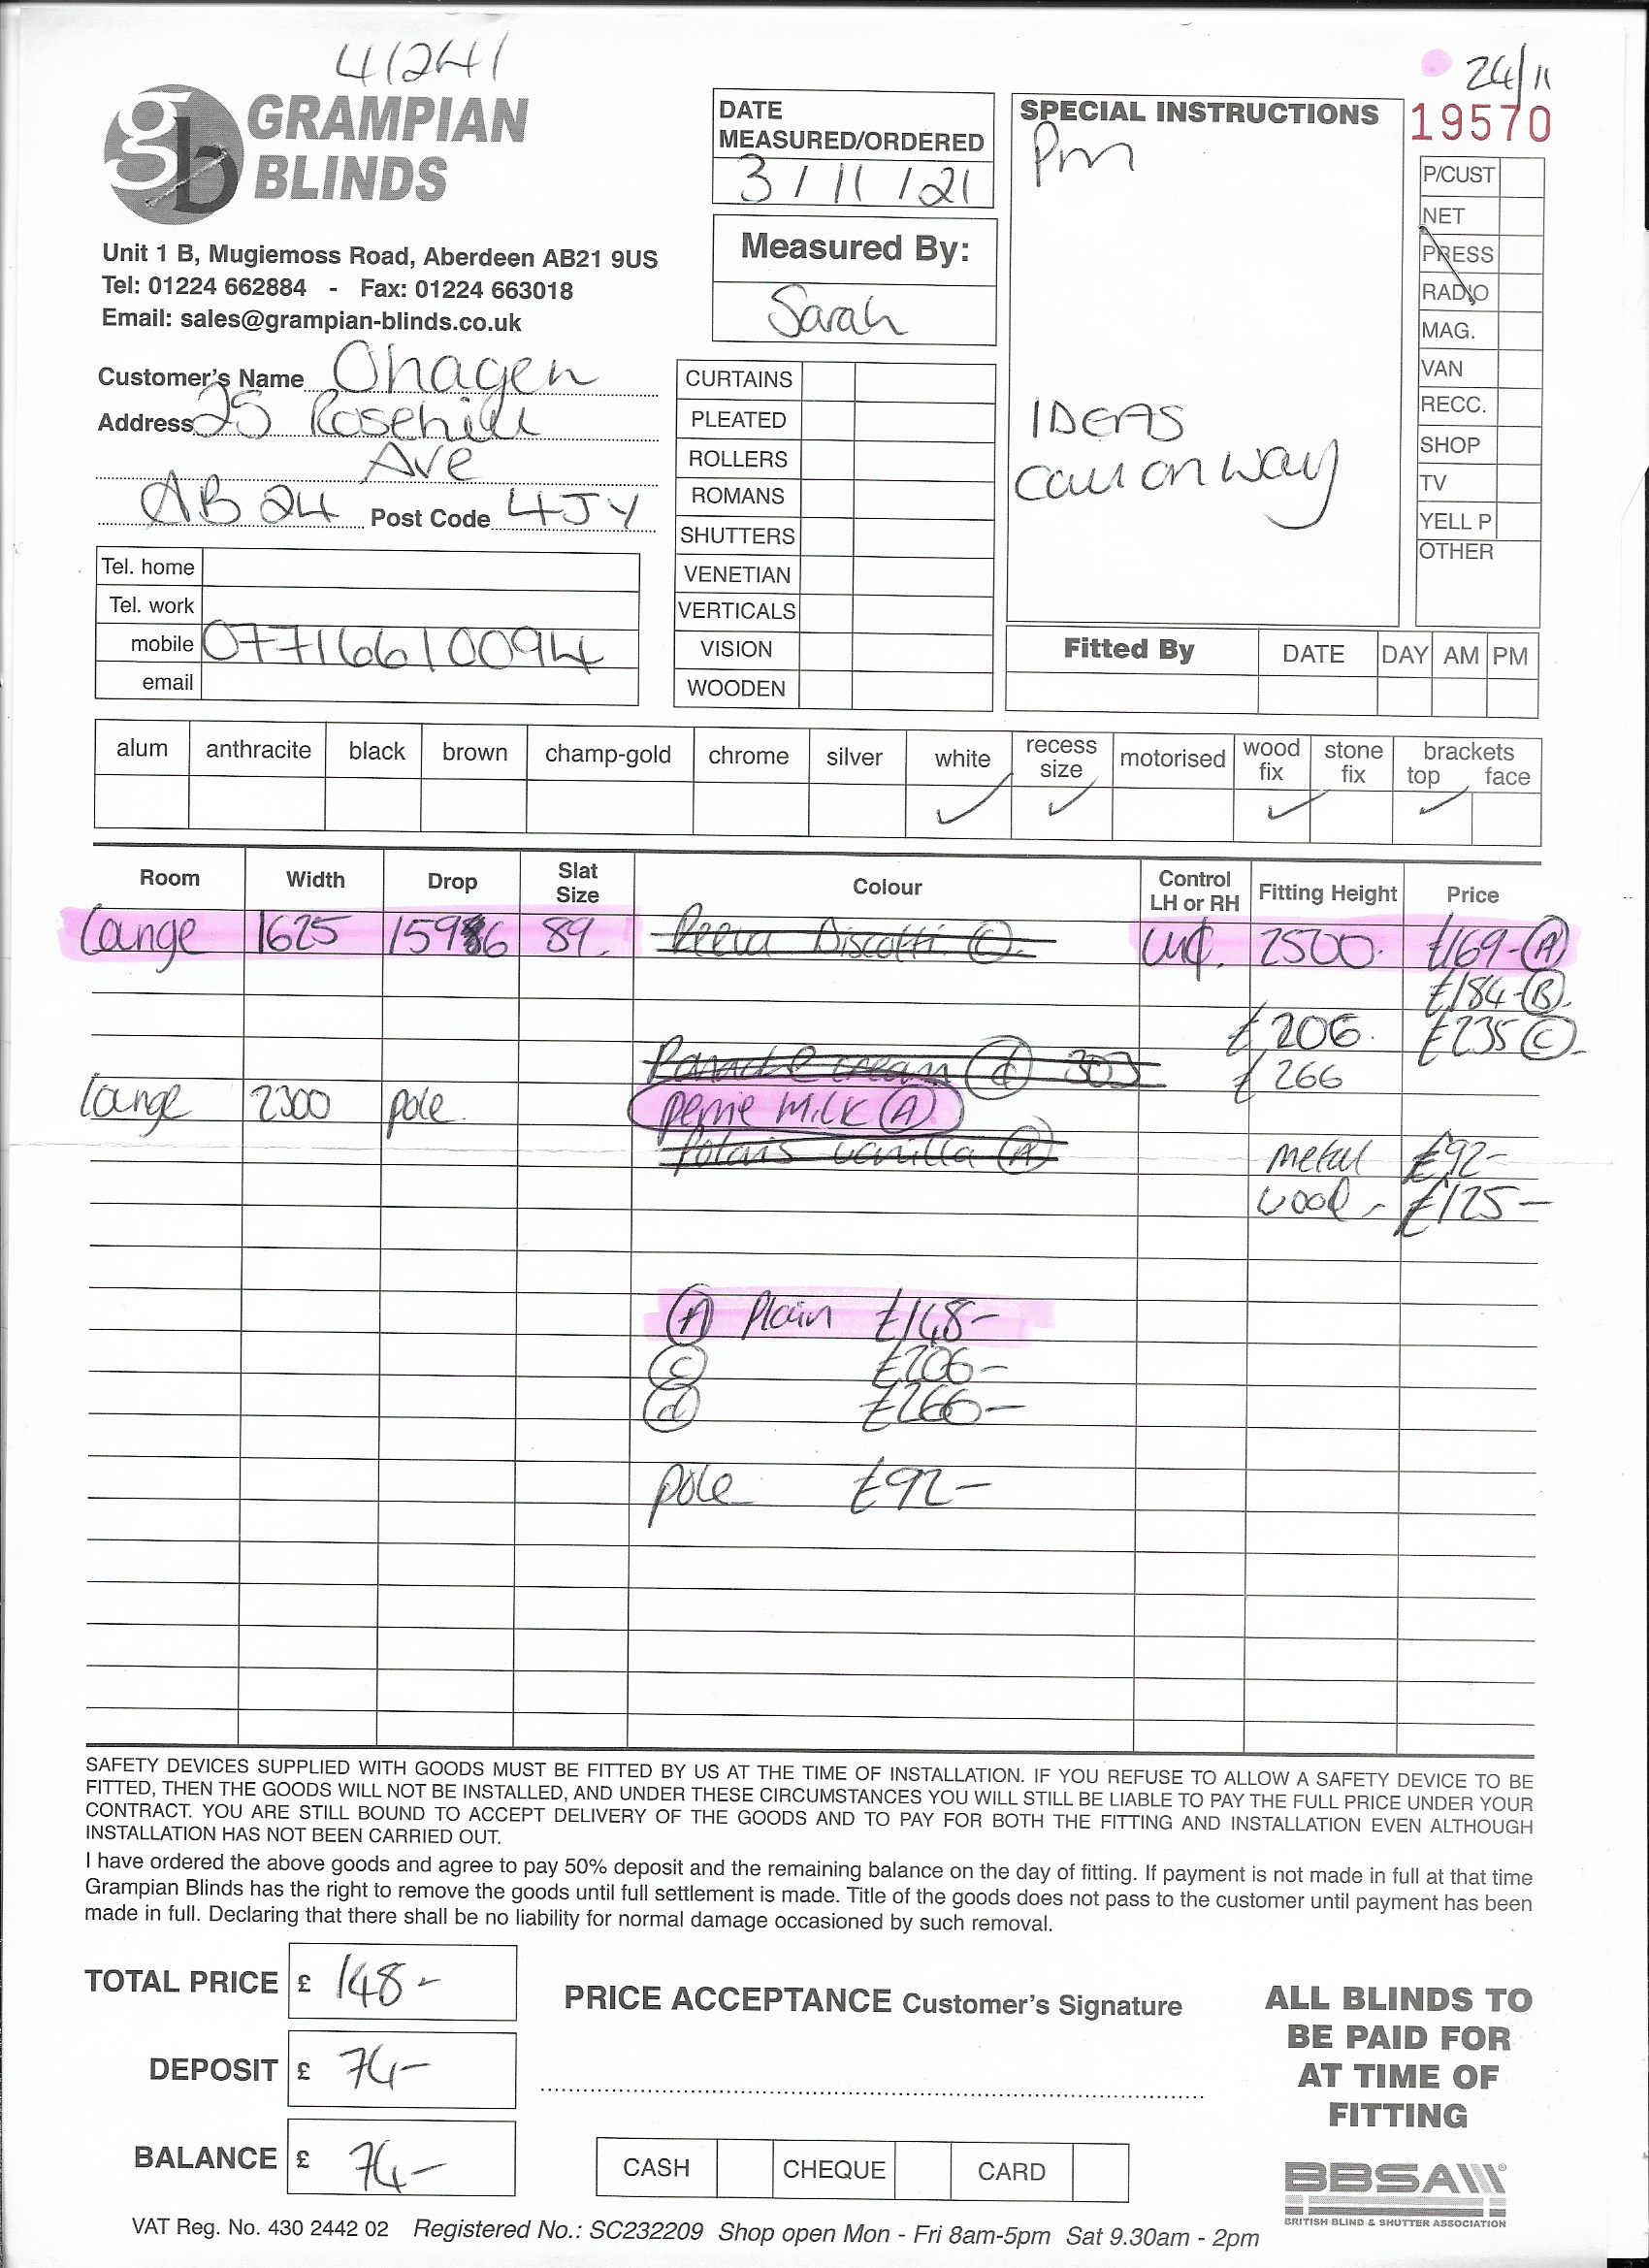 41241
24/11
GRAMPIAN
BLINDS
Unit 1 B, Mugiemoss Road, Aberdeen AB21 9US
Tel: 01224 662884 - Fax: 01224 663018
Email: sales@grampian-blinds.co.uk
DATE
MEASURED/ORDERED
3/11/21
Measured By:
Sarah
SPECIAL INSTRUCTIONS
Pm
IDEAS
Call on way
19570
P/CUST
NET
PRESS
RADIO
MAG.
VAN
RECC.
SHOP
TV
YELL P
OTHER
Customer's Name Ohagen
Address 25 Rosehill
Ave
AB24 Post Code 4JY
Tel. home
Tel. work
mobile 07716610094
email
CURTAINS
PLEATED
ROLLERS
ROMANS
SHUTTERS
VENETIAN
VERTICALS
VISION
WOODEN
Fitted By DATE DAY AM PM
alum anthracite black brown champ-gold chrome silver white recess size motorised wood fix stone fix brackets top face
Room Width Drop Slat Size Colour Control LH or RH Fitting Height Price
Lounge 1625 1596 89. Biscotti C 2500. £169-A
£184-B
£206. £235 C
cream d 303 £266
Lounge 2300 pole. Milk A
Polaris vanilla A metal £92-
wood - £125-
A Plain £148-
C £206-
d £266-
pole £92-
SAFETY DEVICES SUPPLIED WITH GOODS MUST BE FITTED BY US AT THE TIME OF INSTALLATION. IF YOU REFUSE TO ALLOW A SAFETY DEVICE TO BE
FITTED, THEN THE GOODS WILL NOT BE INSTALLED, AND UNDER THESE CIRCUMSTANCES YOU WILL STILL BE LIABLE TO PAY THE FULL PRICE UNDER YOUR
CONTRACT. YOU ARE STILL BOUND TO ACCEPT DELIVERY OF THE GOODS AND TO PAY FOR BOTH THE FITTING AND INSTALLATION EVEN ALTHOUGH
INSTALLATION HAS NOT BEEN CARRIED OUT.
I have ordered the above goods and agree to pay 50% deposit and the remaining balance on the day of fitting. If payment is not made in full at that time
Grampian Blinds has the right to remove the goods until full settlement is made. Title of the goods does not pass to the customer until payment has been
made in full. Declaring that there shall be no liability for normal damage occasioned by such removal.
TOTAL PRICE £ 148-
DEPOSIT £ 74-
BALANCE £ 74-
PRICE ACCEPTANCE Customer's Signature
CASH CHEQUE CARD
ALL BLINDS TO
BE PAID FOR
AT TIME OF
FITTING
BBSA
BRITISH BLIND & SHUTTER ASSOCIATION
VAT Reg. No. 430 2442 02 Registered No.: SC232209 Shop open Mon - Fri 8am-5pm Sat 9.30am - 2pm